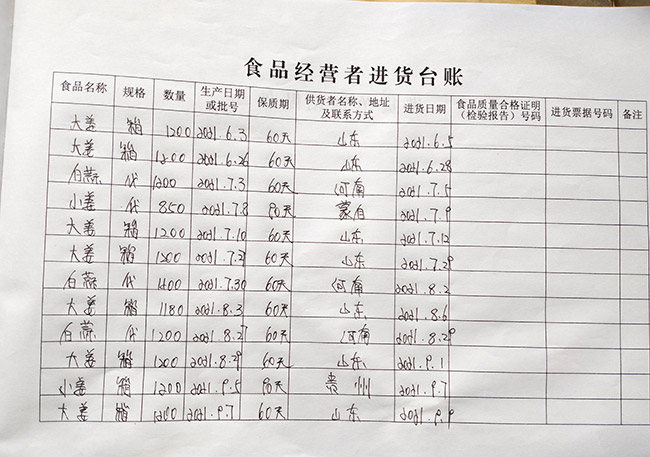 食品经营者进货台账
食品名称 规格 数量 生产日期或批号 保质期 供货者名称、地址及联系方式 进货日期 食品质量合格证明（检验报告）号码 进货票据号码 备注
大姜 箱 1200 2021.6.3 60天 山东 2021.6.5
大姜 箱 1200 2021.6.26 60天 山东 2021.6.28
白蒜 代 1200 2021.7.3 60天 河南 2021.7.5
小姜 代 850 2021.7.8 90天 蒙自 2021.7.9
大姜 箱 1200 2021.7.10 60天 山东 2021.7.12
大姜 箱 1200 2021.7.27 60天 山东 2021.7.29
白蒜 代 1400 2021.7.30 60天 河南 2021.8.2
大姜 箱 1180 2021.8.3 60天 山东 2021.8.6
白蒜 代 1200 2021.8.27 60天 河南 2021.8.29
大姜 箱 1200 2021.8.29 60天 山东 2021.9.1
小姜 箱 1200 2021.9.5 90天 贵州 2021.9.7
大姜 箱 1200 2021.9.7 60天 山东 2021.9.9